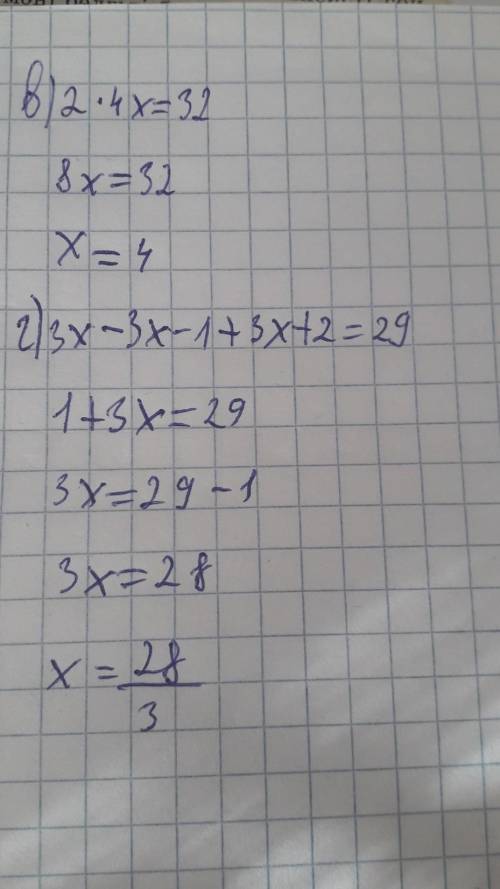 в) 2·4x=32
8x=32
x=4
г) 3x-3x-1+3x+2=29
1+3x=29
3x=29-1
3x=28
x=28/3